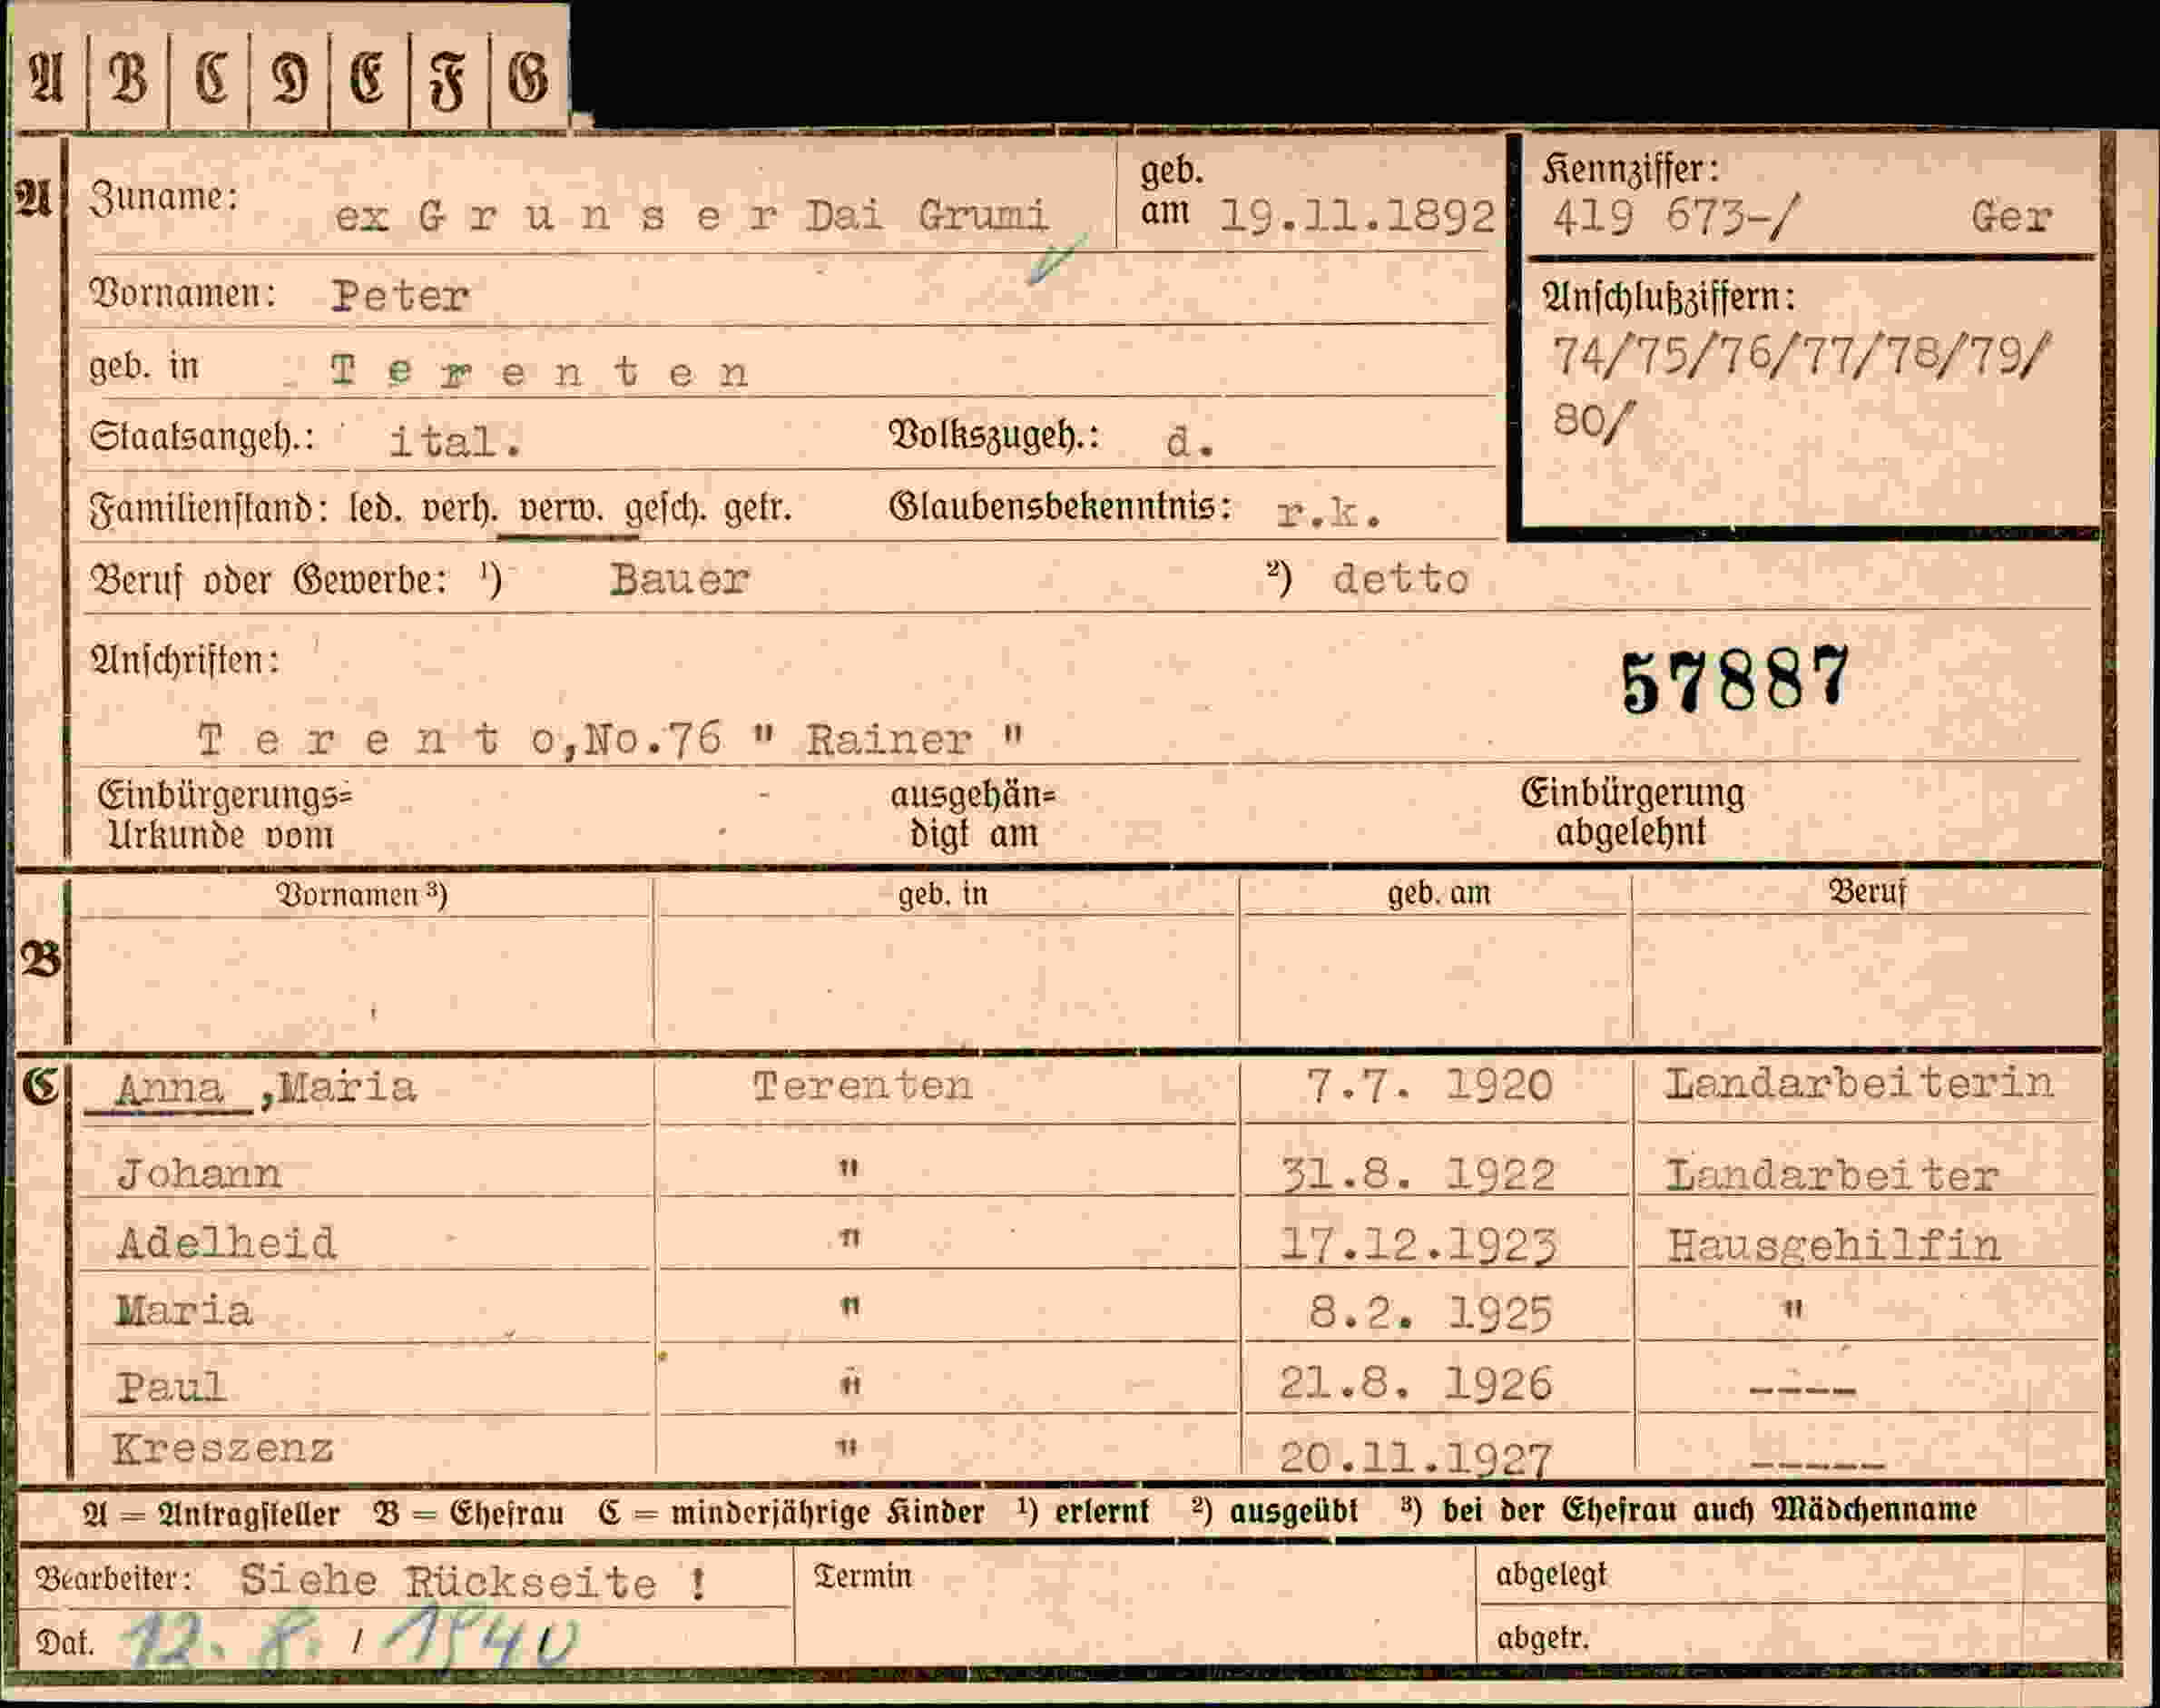 A B C D E F G
A Zuname: ex G r u n s e r Dai Grumi geb. am 19.11.1892 Kennziffer: 419 673-/ Ger
Vornamen: Peter
Anschlußziffern:
74/75/76/77/78/79/
80/
geb. in T e r e n t e n
Staatsangeh.: ital. Volkszugeh.: d.
Familienstand: led. verh. verw. gesch. getr. Glaubensbekenntnis: r.k.
Beruf oder Gewerbe: ¹) Bauer ²) detto
Anschriften:
57887
T e r e n t o,No.76 " Rainer "
Einbürgerungs= ausgehän= Einbürgerung
Urkunde vom digt am abgelehnt
Vornamen ³) geb. in geb. am Beruf
B
C Anna ,Maria Terenten 7.7. 1920 Landarbeiterin
Johann " 31.8. 1922 Landarbeiter
Adelheid " 17.12.1923 Hausgehilfin
Maria " 8.2. 1925 "
Paul " 21.8. 1926 ----
Kreszenz " 20.11.1927 -----
A = Antragsteller B = Ehefrau C = minderjährige Kinder ¹) erlernt ²) ausgeübt ³) bei der Ehefrau auch Mädchenname
Bearbeiter: Siehe Rückseite ! Termin abgelegt
Dat. 12. 8. / 1940 abgetr.